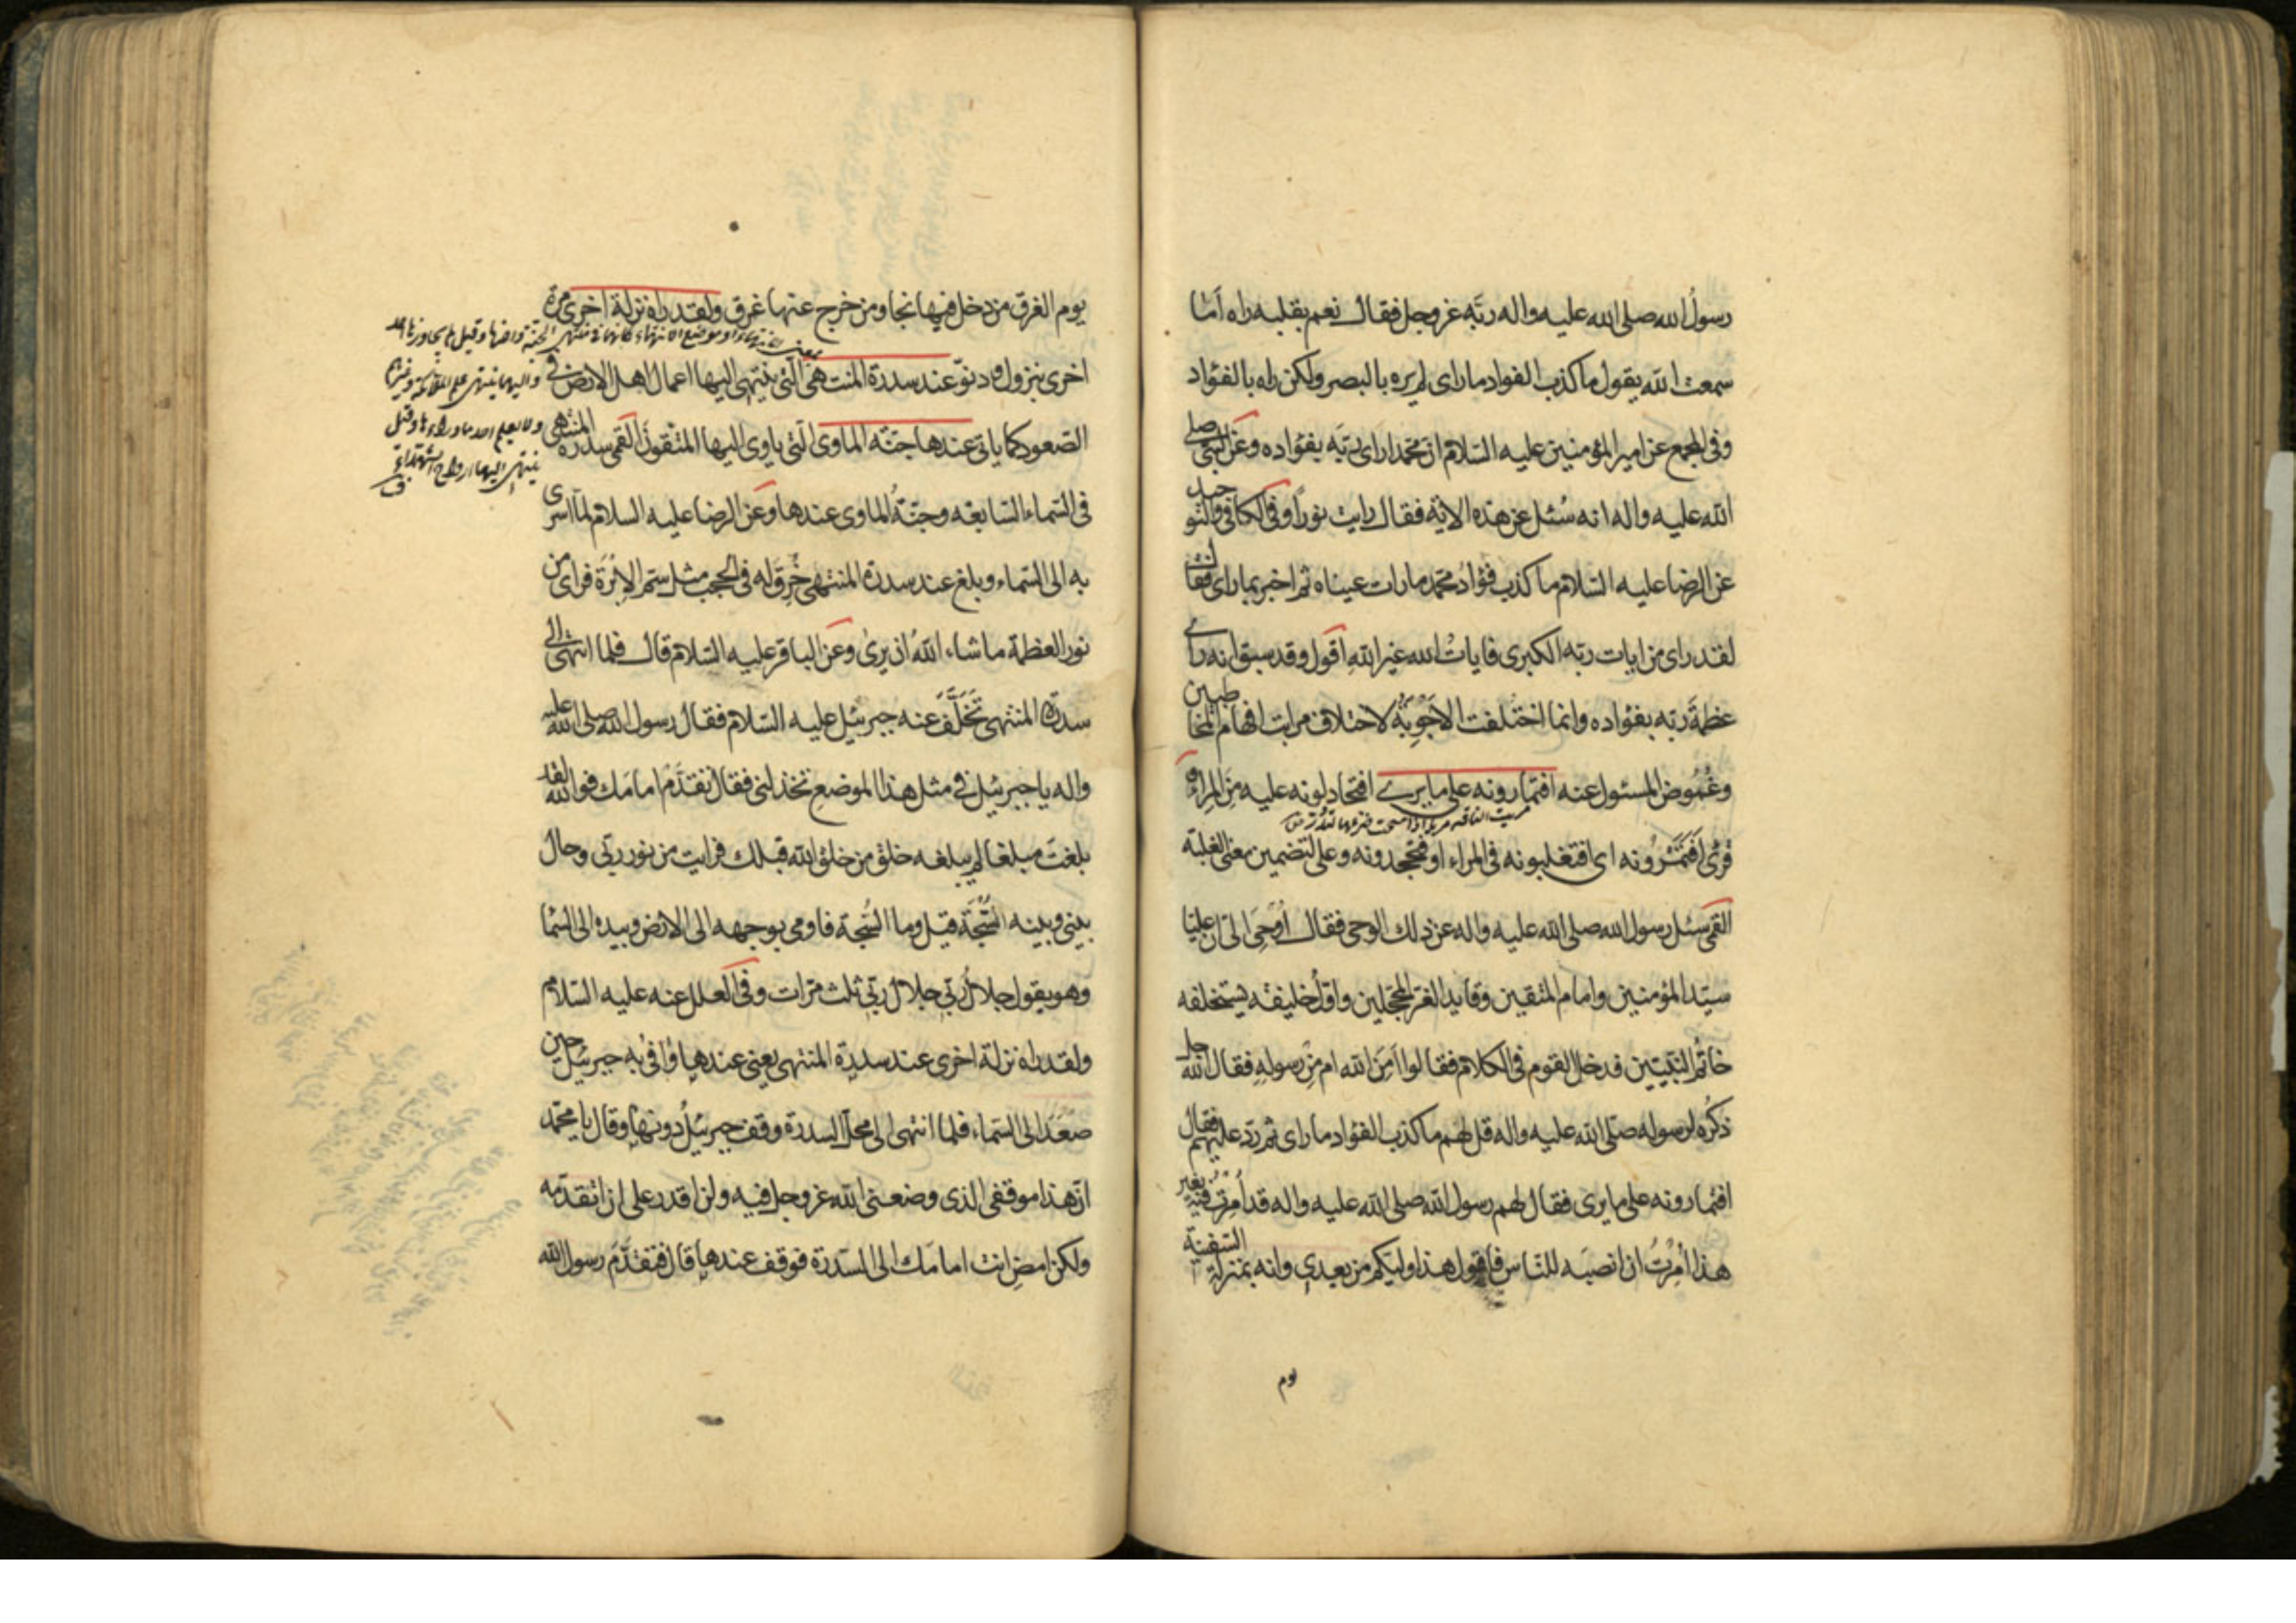 رسولُ الله صلى الله عليه واله ربَّه عز وجل فقال نعم بقلبه راه اَمَا
سمعت الله يقول ما كذب الفواد ما راى لم يره بالبصر ولكن راه بالفؤاد
وفى المجمع عن امير المؤمنين عليه السّلام انّ محمّدا راى ربّه بفؤاده وعن النبى صلى
الله عليه واله انه سُئل عن هذه الاية فقال رايت نوراً وفى الكافى والتوحيد
عن الرضا عليه السّلام ما كذب فؤادُ محمّد ما رات عيناه ثم اخبر بما راى فقال
لقد راى من ايات ربّه الكبرى فاياتُ الله غير الله اقول وقد سبق انه راى
عظمةَ ربّه بفؤاده وانما اختلفت الاَجْوِبَةُ لاختلاف مراتب افهام المخاطبين
وغُمُوض المسئول عنه افتمارونه على ما يرى افتجادلونه عليه مِنَ المِراء و
مريت الناقة مريا اذا مسحت ضرعها لتدر ص
قرئ اَفَتَمْرُونه اى افتغلبونه فى المراء او فتجحدونه وعلى لتضمين معنى الغلبة
القمى سئل رسول الله صلى الله عليه واله عن ذلك الوحى فقال اُوحِىَ الىّ انّ عليّا
سيّد المؤمنين وامام المتّقين وقايد الغر المحجّلين واوّلُ خليفة يستخلفه
خاتَمُ النبيّين فدخل القوم فى الكلام فقالوا اَمِنَ الله ام مِنْ رسوله فقال الله جل
ذكرُه لرسوله صلّى الله عليه واله قل لهم ما كذب الفؤاد ما راى ثم ردّ عليهم فقال
افتمارونه على ما يرى فقال لهم رسول الله صلى الله عليه واله قد اُمِرْتُ فيه بغير
هذا اُمِرْتُ ان انصبَه للنّاس فاقول هذا وليّكم من بعدى وانه بمنزلة السّفينة
يوم
يوم الغرق من دخل فيها نجا ومن خرج عنها غرق ولقد راه نزلة اخرى مرّة
اخرى بنزول ودنوّ عند سدرة المنتهى الّتى ينتهى اليها اعمال اهل الارض فى
الصّعود كما ياتى عندها جنّة الماوى الّتى ياوى اليها المتّقون القمى سدرة المنتهى
فى السّماء السّابعة وجنّةُ الماوى عندها وعن الرضا عليه السلام لمّا اسرى
به الى السّماء وبلغ عند سدرة المنتهى خُرِقَ له فى الحجب مثل سمّ الاِبْرَة فراى من
نور العظمة ما شاء اللهُ ان يرىٰ وعن الباقر عليه السّلام قال فلما انتهى الى
سدرة المنتهى تَخَلَّفَ عنه جبرئيل عليه السّلام فقال رسول الله صلى الله عليه
واله يا جبرئيل فى مثل هذا الموضع تخذلنى فقال تقدَّمْ امامَك فوالله لقد
بلغتَ مبلغا لم يبلغه خلق من خلق الله قبلك فرايت من نور ربّى وحال
بينى وبينه السُّبْجَة قيل وما السُّبْجَة فاومى بوجهه الى الارض وبيده الى السّماء
وهو يقول جلالُ ربّى جلال ربّى ثلث مرّات وفى العلل عنه عليه السّلام
ولقد راه نزلة اخرى عند سدرة المنتهى يعنى عندها وافى به جبرئيل حين
صَعِدَ الى السّماء فلما انتهى الى محلّ السدرة وقف جبرئيلُ دونها وقال يا محمّد
انّ هذا موقفى الذى وضعنى الله عز وجل فيه ولن اقدر على ان اتقدّمه
ولكن امضِ انت امامَك الى السّدرة فوقف عندها قال فتقدَّمَ رسول الله
الانتهاء او موضع الانتهاء كانها فى منتهى الجنة واخرها وقيل لم يجاوزها احد
واليها ينتهى علم الملائكة وغيرهم
ولا يعلم احد ما وراءها وقيل
ينتهى اليها ارواح الشهداء